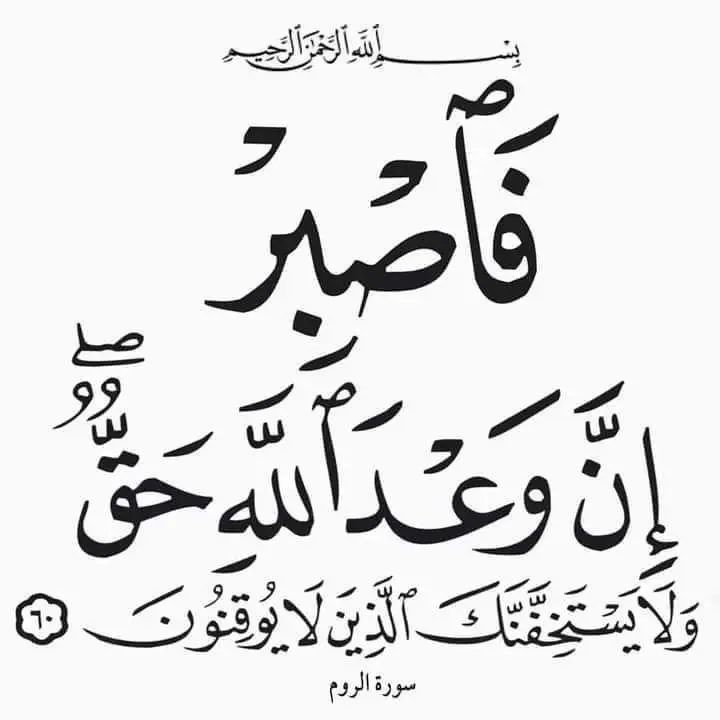 بِسْمِ ٱللَّهِ ٱلرَّحْمَٰنِ ٱلرَّحِيمِ
فَٱصْبِرْ
إِنَّ وَعْدَ ٱللَّهِ حَقٌّ ۖ
وَلَا يَسْتَخِفَّنَّكَ ٱلَّذِينَ لَا يُوقِنُونَ ٦٠
سورة الروم